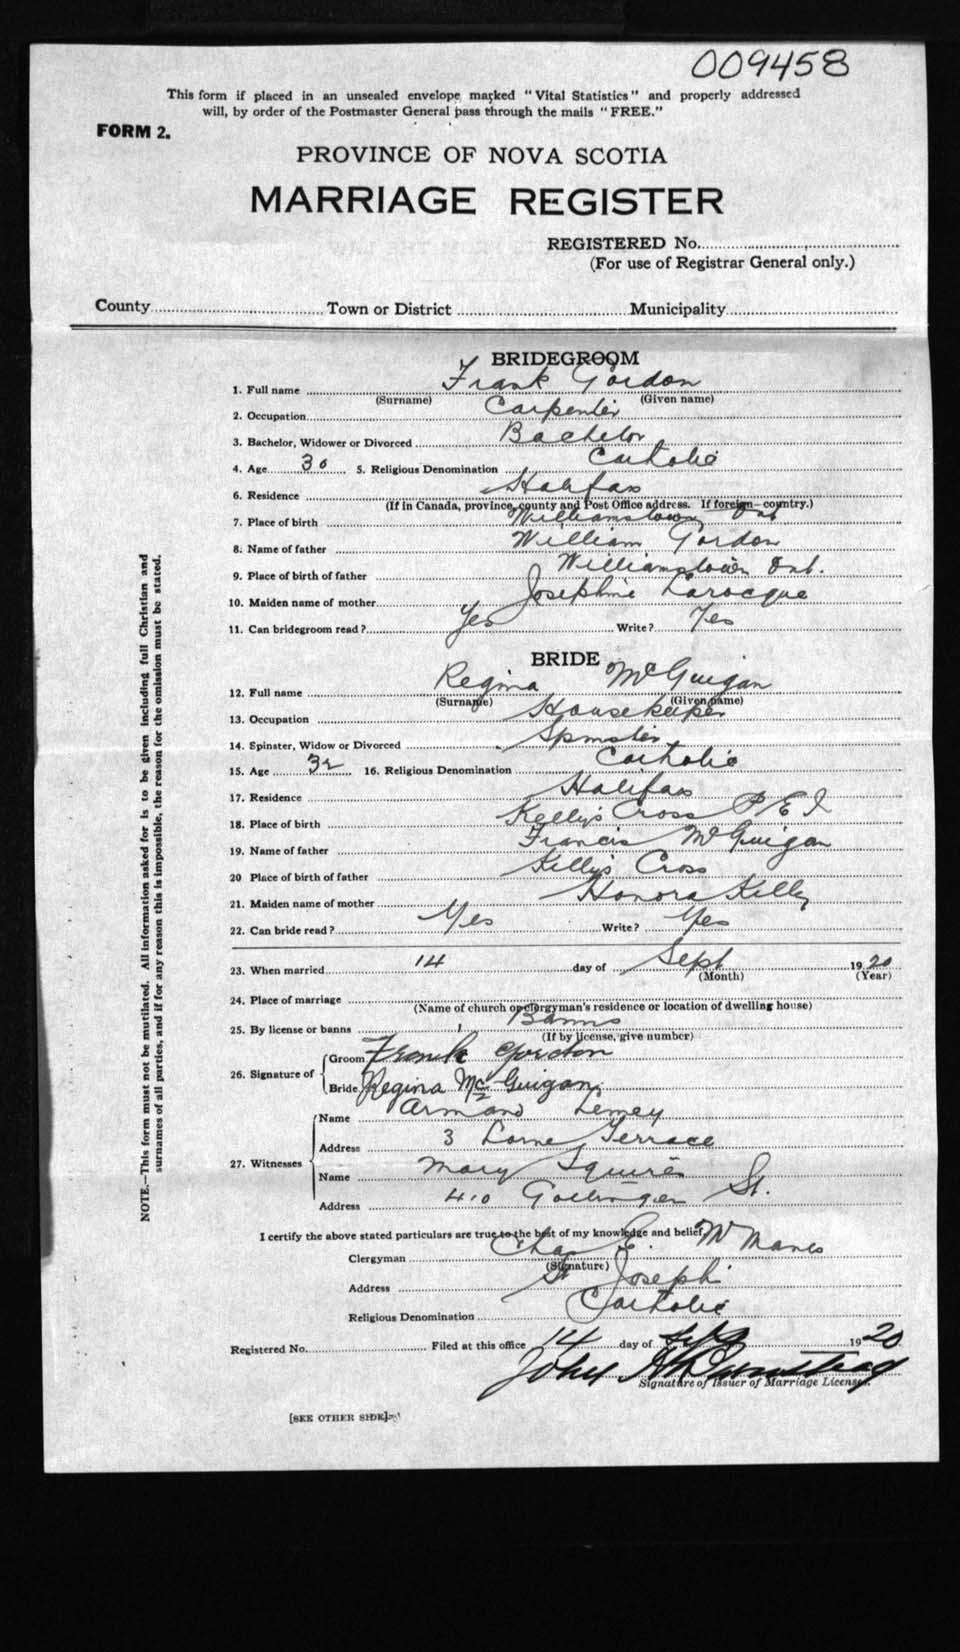 009458
This form if placed in an unsealed envelope marked "Vital Statistics" and properly addressed
will, by order of the Postmaster General pass through the mails "FREE."
FORM 2.
PROVINCE OF NOVA SCOTIA
MARRIAGE REGISTER
REGISTERED No.
(For use of Registrar General only.)
County Town or District Municipality
BRIDEGROOM
1. Full name Frank Gordon
(Surname) (Given name)
2. Occupation Carpenter
3. Bachelor, Widower or Divorced Bachelor
4. Age 30 5. Religious Denomination Catholic
6. Residence Halifax
(If in Canada, province, county and Post Office address. If foreign—country.)
7. Place of birth Williamstown Ont
8. Name of father William Gordon
9. Place of birth of father Williamstown Ont.
10. Maiden name of mother Josephine Larocque
11. Can bridegroom read? Yes Write? Yes
BRIDE
12. Full name Regina McGuigan
(Surname) (Given name)
13. Occupation Housekeeper
14. Spinster, Widow or Divorced Spinster
15. Age 32 16. Religious Denomination Catholic
17. Residence Halifax
18. Place of birth Kelly's Cross P E I
19. Name of father Francis McGuigan
20 Place of birth of father Kelly's Cross
21. Maiden name of mother Honora Kelly
22. Can bride read? Yes Write? Yes
23. When married 14 day of Sept 1920
(Month) (Year)
24. Place of marriage
(Name of church or clergyman's residence or location of dwelling house)
25. By license or banns Banns
(If by license, give number)
26. Signature of
Groom Frank Gordon
Bride Regina McGuigan
27. Witnesses
Name Armand Lemey
Address 3 Lorne Terrace
Name Mary Squires
Address 410 Gottingen St.
I certify the above stated particulars are true to the best of my knowledge and belief
Clergyman Chas E. McManus
(Signature)
Address St Joseph
Religious Denomination Catholic
Registered No. Filed at this office 14 day of 1920
John
Signature of Issuer of Marriage Licenses.
[SEE OTHER SIDE]
NOTE.—This form must not be mutilated. All information asked for is to be given including full Christian and
surnames of all parties, and if for any reason this is impossible, the reason for the omission must be stated.